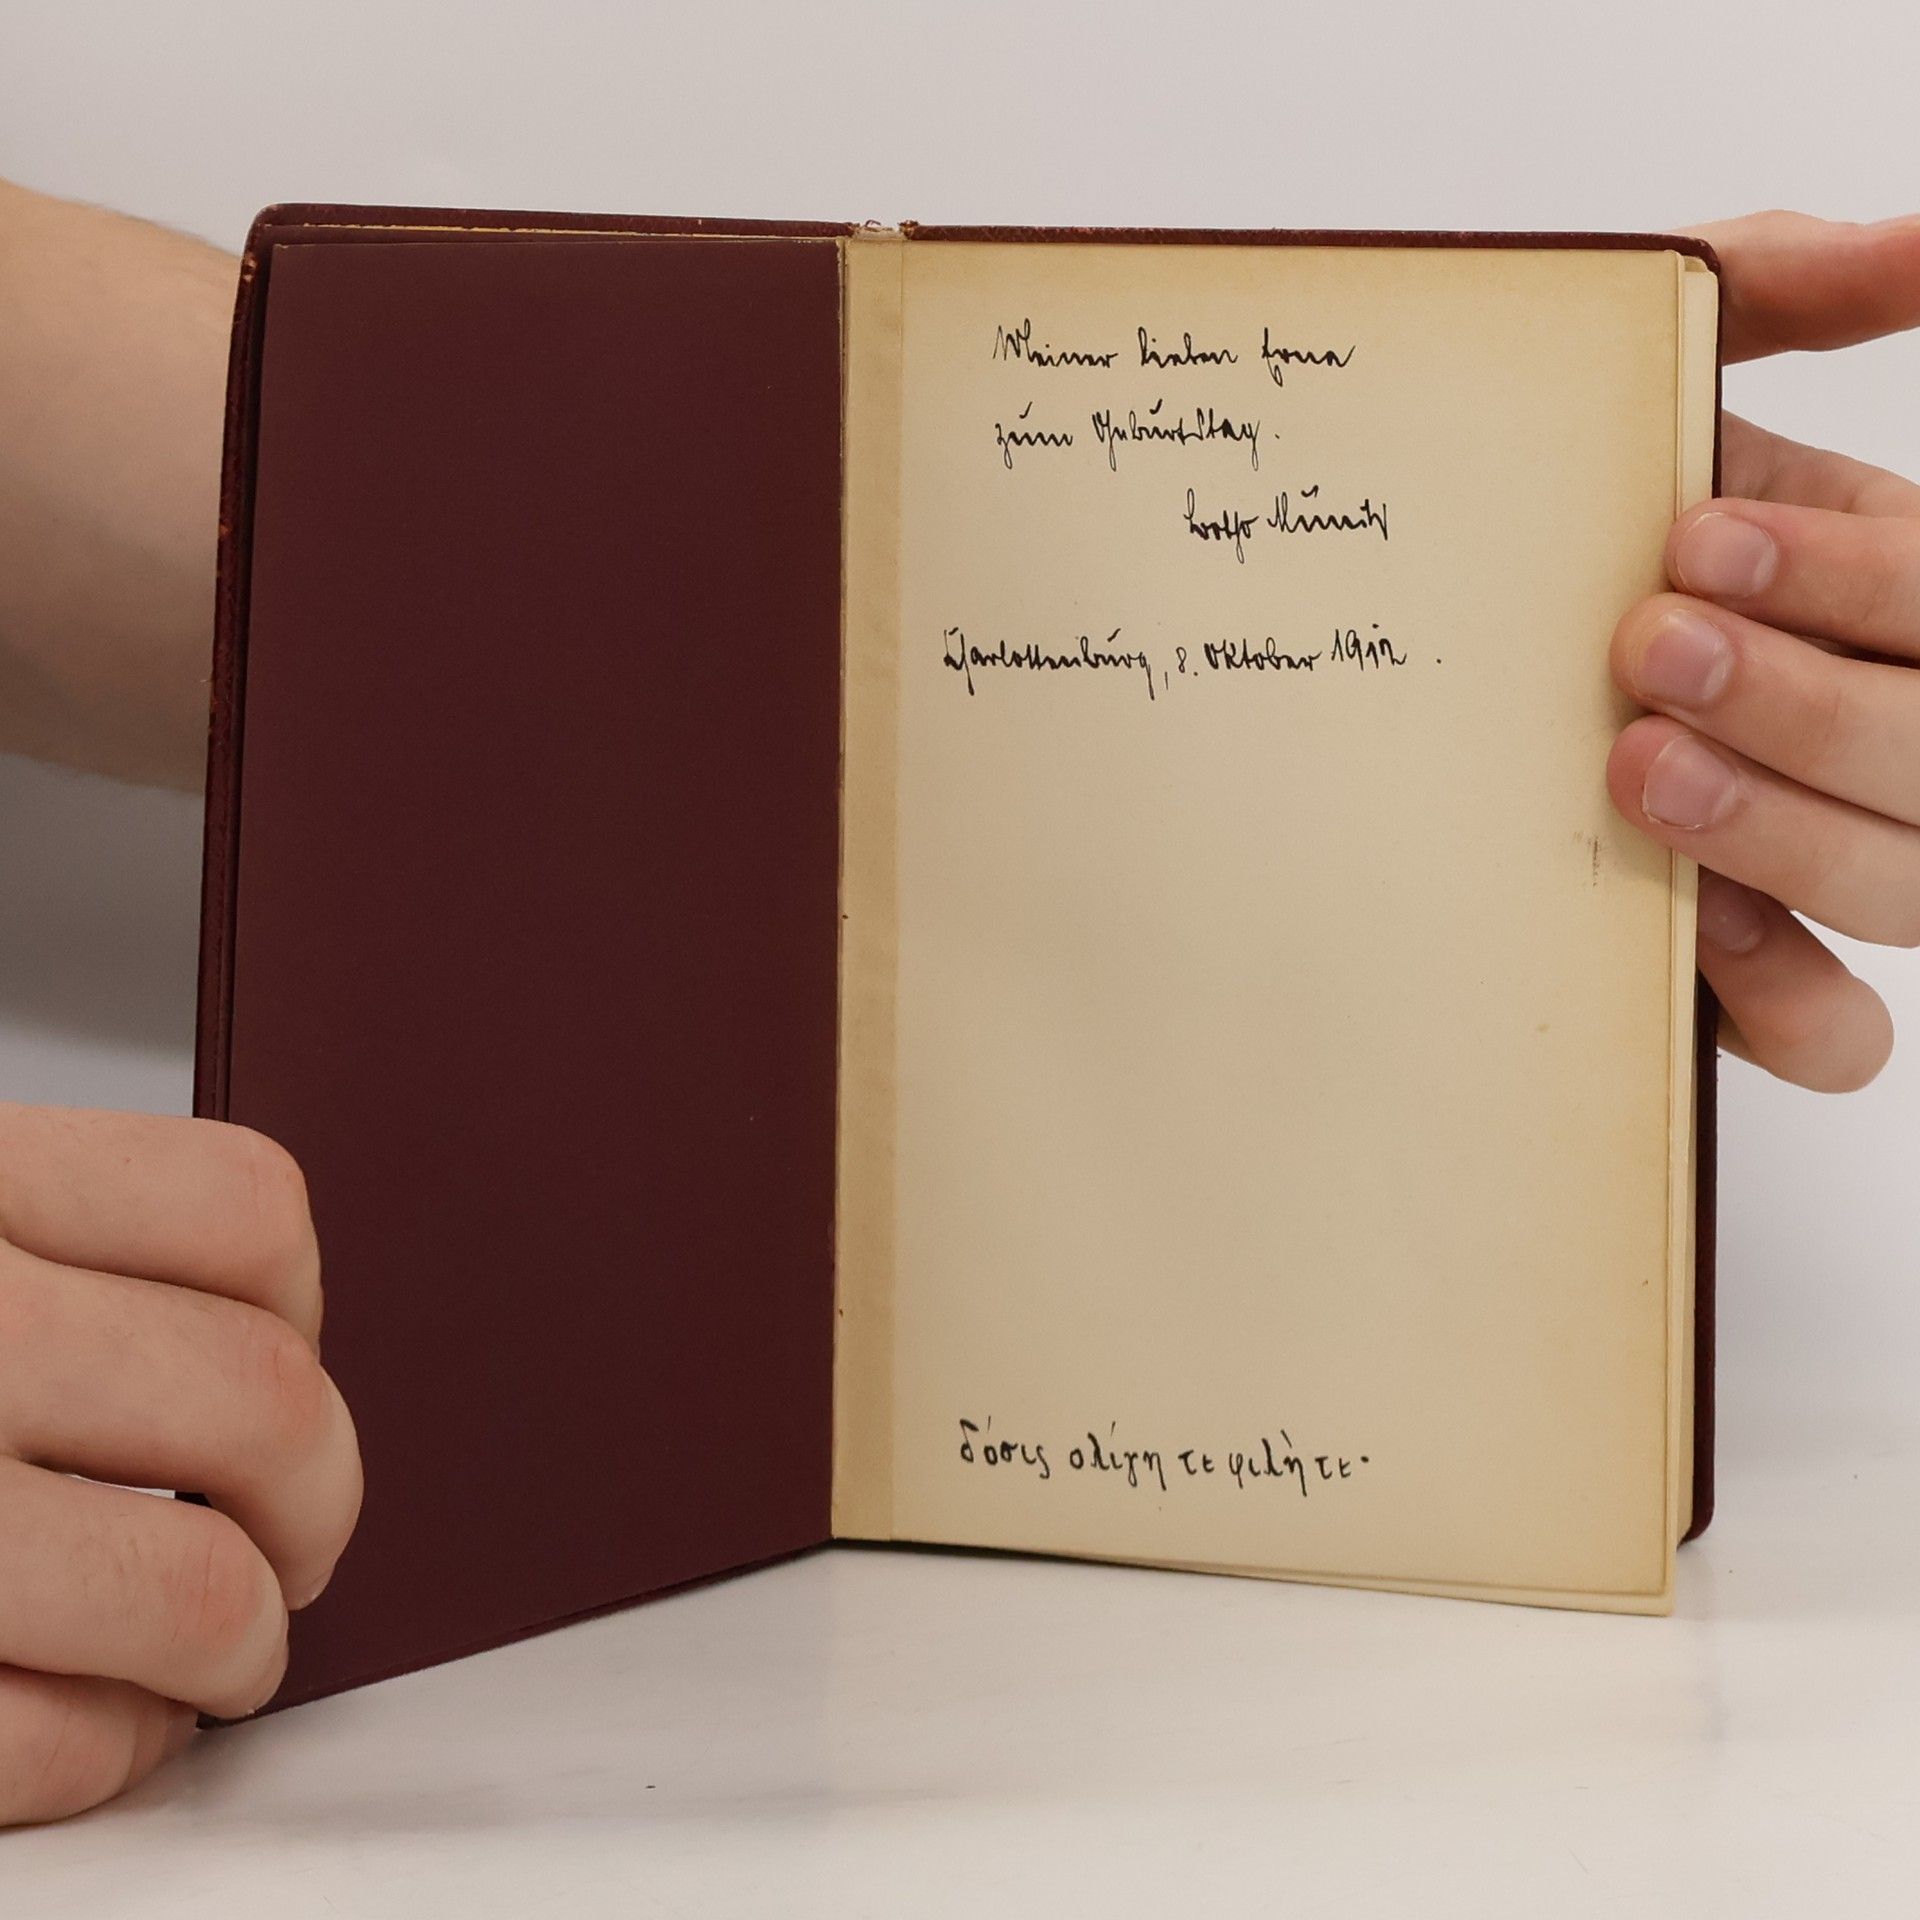 Meiner lieben Erna
zum Geburtstag.
Charlottenburg, 8. Oktober 1912.
δόσις ολίγη τε φιλὴ τε·